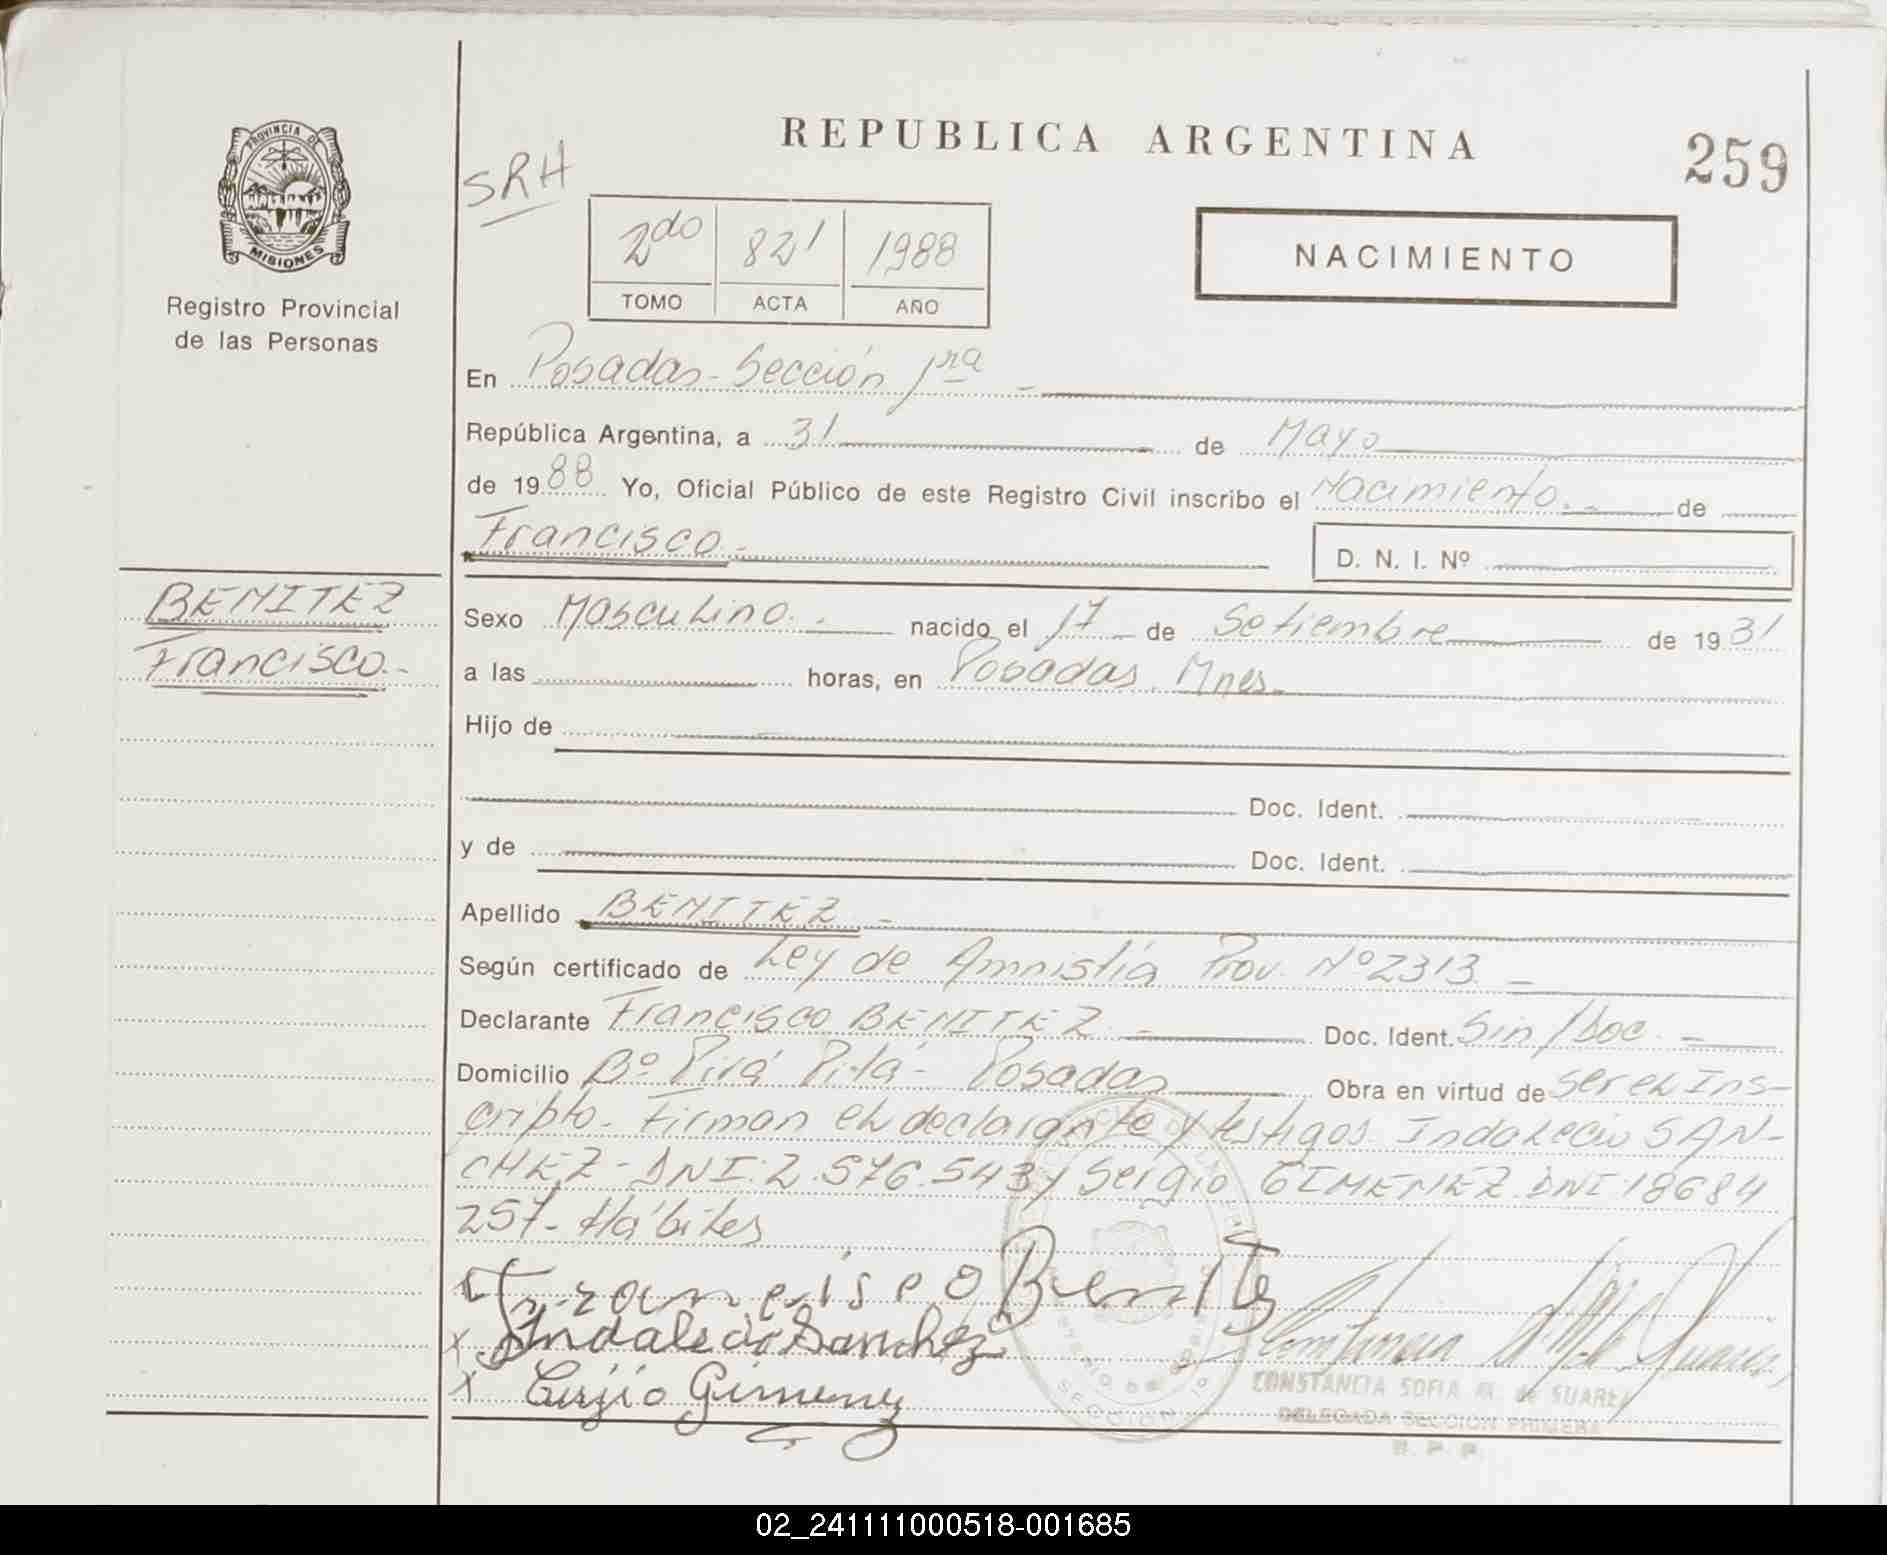 PROVINCIA DE
MISIONES
Registro Provincial
de las Personas
BENITEZ
Francisco.-
SRH
REPUBLICA ARGENTINA
259
2do 821 1988
TOMO ACTA AÑO
NACIMIENTO
En Posadas-Sección 1ra -
República Argentina, a 31 de Mayo
de 1988 Yo, Oficial Público de este Registro Civil inscribo el Nacimiento.- de
Francisco.-
D. N. I. Nº
Sexo Masculino.- nacido el 17 - de Setiembre de 1931
a las horas, en Posadas. Mnes.
Hijo de
Doc. Ident.
y de Doc. Ident.
Apellido BENITEZ -
Según certificado de Ley de Amnistía Prov. Nº2313. -
Declarante Francisco BENITEZ. - Doc. Ident. Sin/Doc. -
Domicilio Bº Pirá Pitá- Posadas Obra en virtud de ser el Ins-
cripto- Firman el declarante y testigos Indalecio SAN-
CHEZ-DNI:2.576.543 y Sergio GIMENEZ.DNI:18684
257- Hábiles
Francisco Benitez
x Indalecio Sanchez
x Serjio Gimenez
SECCION 1º
CONSTANCIA SOFIA M. de SUAREZ
DELEGADA SECCION PRIMERA
R. P. P.
02_241111000518-001685